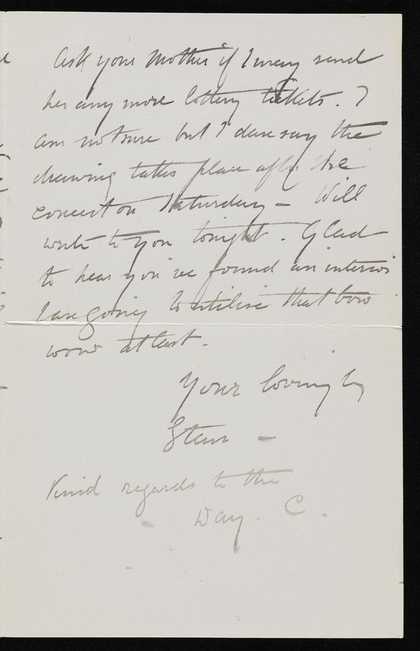 Ask your Mother if I may send
her any more lottery tickets. I
am not sure but I daresay the
drawing takes place after the
concert on Saturday – Will
write to you tonight. Glad
to hear you've found an interior
going to utilise that bow
wow at last.
Your loving
Kind regards to the
Day. C.